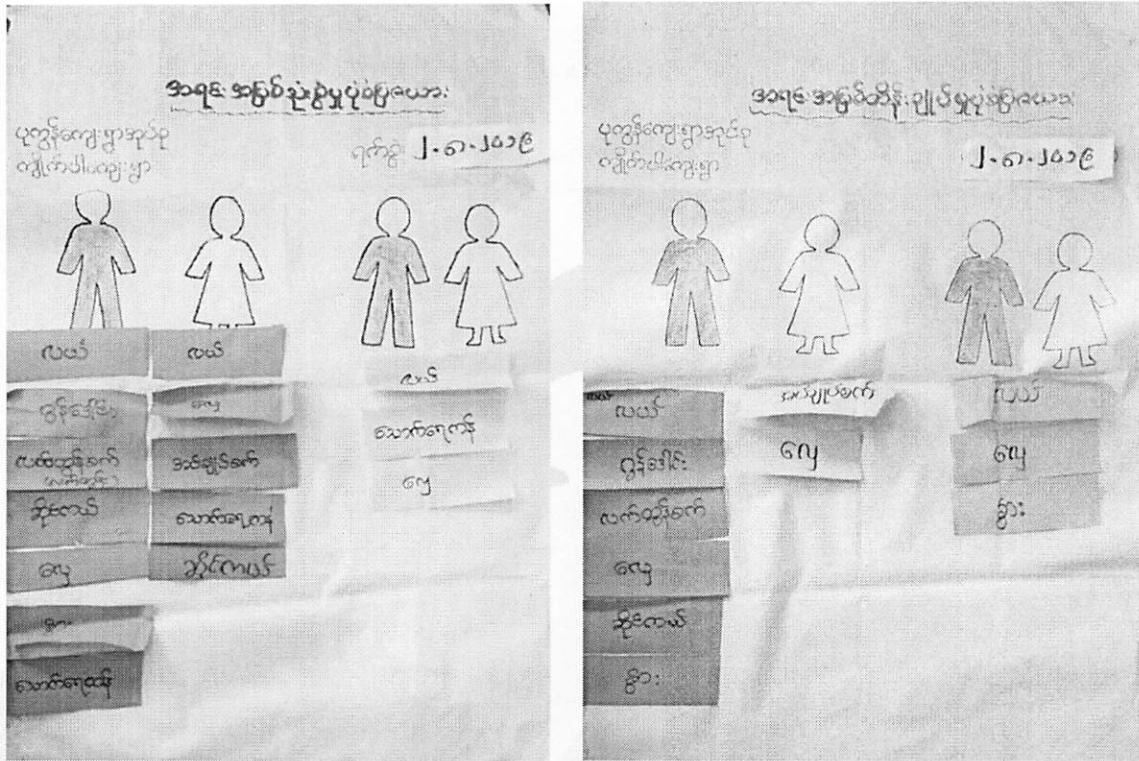 အရင်းအမြစ်သုံးစွဲမှုပုံစံပြဇယား
ပုကွန်ကျေးရွာအုပ်စု
ကျိုက်ပါးကျေးရွာ
ရက်စွဲ ၂.၈.၂၀၁၉
လယ်
ထွန်စက်
လက်တွန်းစက်
ဆိုင်ကယ်
လှေ
သောက်ရေကန်
လယ်
လှေ
အပ်ချုပ်စက်
သောက်ရေကန်
ဆိုင်ကယ်
လယ်
သောက်ရေကန်
လှေ
အရင်းအမြစ်ထိန်းချုပ်မှုပုံစံပြဇယား
ပုကွန်ကျေးရွာအုပ်စု
ကျိုက်ပါးကျေးရွာ
၂.၈.၂၀၁၉
လယ်
လက်တွန်းစက်
လှေ
ဆိုင်ကယ်
နွား
အပ်ချုပ်စက်
လှေ
လယ်
လှေ
နွား